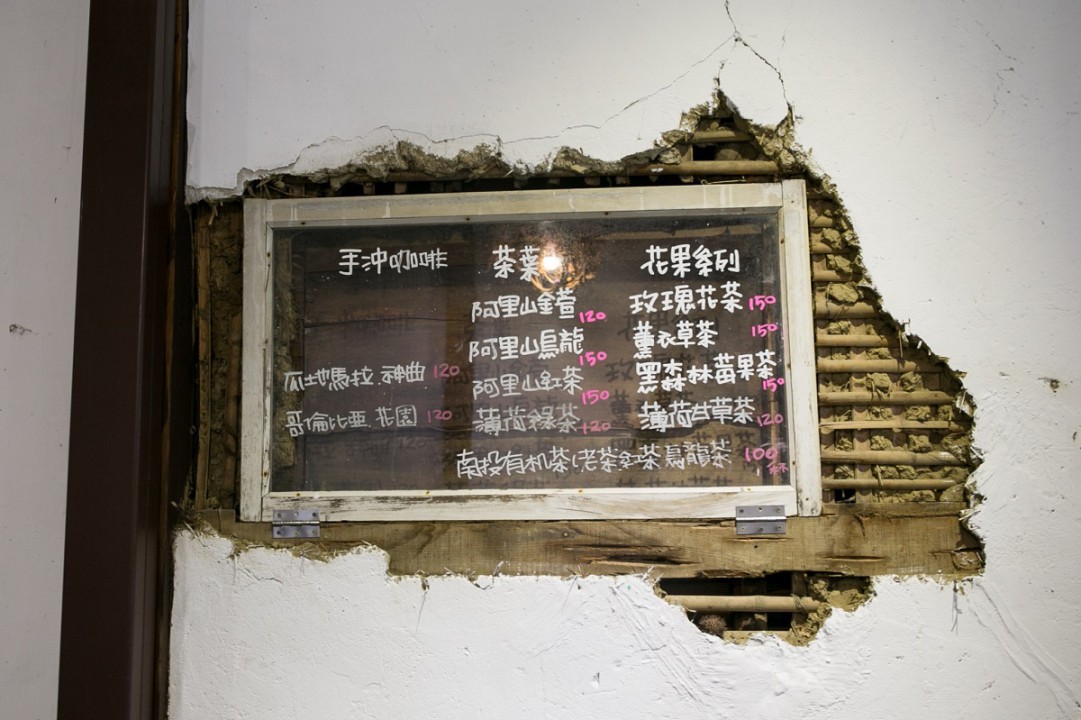 手沖咖啡
瓜地馬拉.神曲 120
哥倫比亞.花園 120
茶葉
阿里山金萱 120
阿里山烏龍 150
阿里山紅茶 150
薄荷綠茶 120
花果系列
玫瑰花茶 150
薰衣草茶 150
黑森林莓果茶 150
薄荷甘草茶 120
南投有机茶(老茶 紅茶 烏龍茶 100/杯